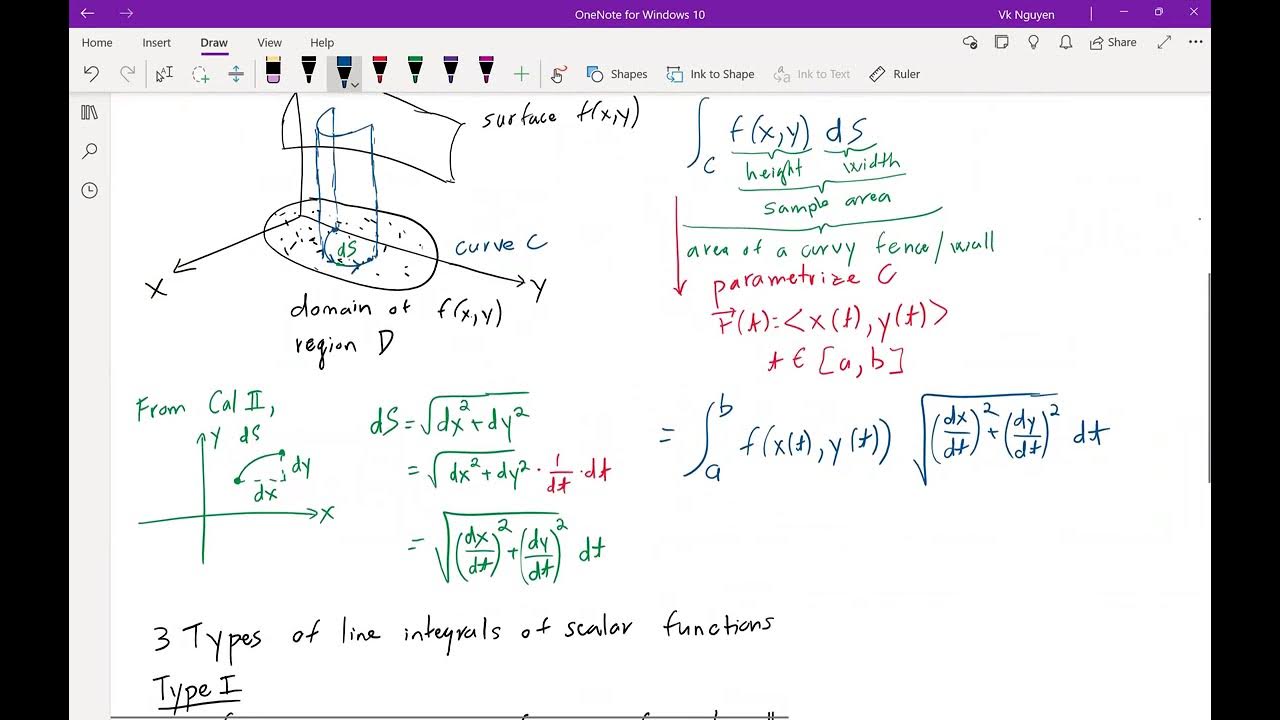 OneNote for Windows 10
Vk Nguyen
Home Insert Draw View Help
Share
Shapes Ink to Shape Ink to Text Ruler
surface f(x,y)
curve C
dS
X
Y
domain of f(x,y)
region D
∫_C f(x,y) dS
height width
sample area
area of a curvy fence/wall
parametrize C
r⃗(t)=<x(t), y(t)>
t ∈ [a, b]
From Cal II,
Y dS
dy
dx
X
dS = √(dx²+dy²)
= √(dx²+dy²) · 1/dt · dt
= √((dx/dt)²+(dy/dt)²) dt
= ∫_a^b f(x(t), y(t)) √((dx/dt)²+(dy/dt)²) dt
3 Types of line integrals of scalar functions
Type I